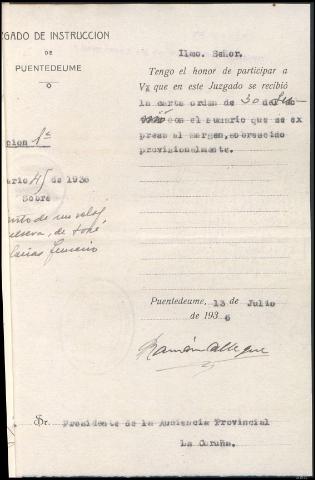 ZGADO DE INSTRUCCION
DE
PUENTEDEUME
cion 1ª
ario 45 de 1936
Sobre
de un reloj
de José
Ilmo. Señor.
Tengo el honor de participar a
V que en este Juzgado se recibió
la carta orden de 30 de
con el sumario que se ex
presa al margen, sobreseido
provisionalmente.
Puentedeume, 13 de Julio
de 1936
Sr. Presidente de la Audiencia Provincial
La Coruña.